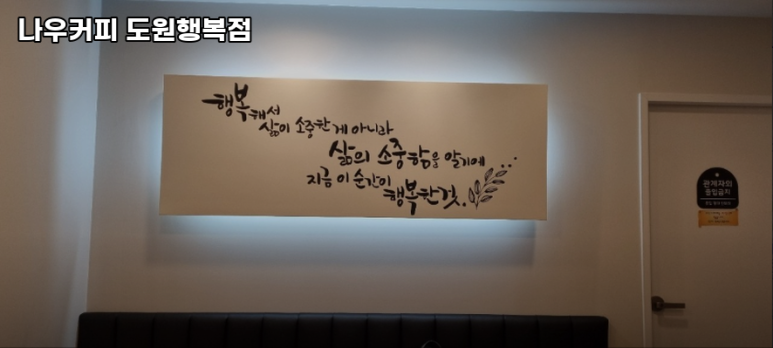 나우커피 도원행복점
행복해서
삶이 소중한 게 아니라
삶의 소중함을 알기에...
지금 이 순간이
행복한 것.
관계자외
출입금지